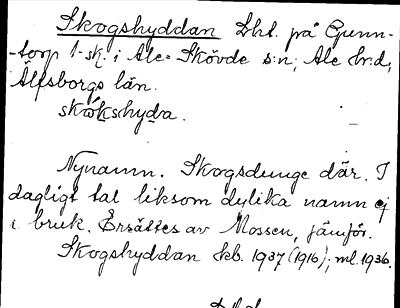 Skogshyddan Lht. på Gunn-
-torp 1-sk. i Ale-Skövde s:n, Ale hr:d,
Älfsborgs län.
skɷ́kshyda.
Nynamn. Skogsdunge där. I
dagligt tal liksom dylika namn ej
i bruk. Ersättes av Mossen, jämför.
Skogshyddan kb. 1937 (1916); ml. 1936.